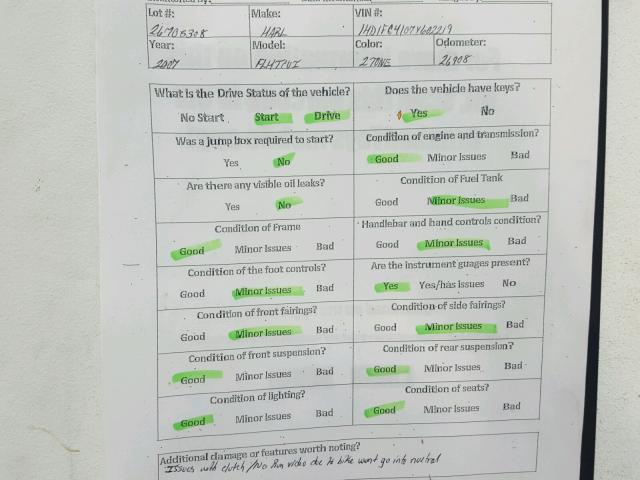 Lot #: Make: VIN #:
26708308 HARL 1HD1FC4107Y602219
Year: Model: Color: Odometer:
2007 FLHTCUI 2TONE 26908
What is the Drive Status of the vehicle? Does the vehicle have keys?
No Start Start Drive Yes No
Was a jump box required to start? Condition of engine and transmission?
Yes No Good Minor Issues Bad
Are there any visible oil leaks? Condition of Fuel Tank
Yes No Good Minor Issues Bad
Condition of Frame Handlebar and hand controls condition?
Good Minor Issues Bad Good Minor Issues Bad
Condition of the foot controls? Are the instrument guages present?
Good Minor Issues Bad Yes Yes/has issues No
Condition of front fairings? Condition of side fairings?
Good Minor Issues Bad Good Minor Issues Bad
Condition of front suspension? Condition of rear suspension?
Good Minor Issues Bad Good Minor Issues Bad
Condition of lighting? Condition of seats?
Good Minor Issues Bad Good Minor Issues Bad
Additional damage or features worth noting?
Issues with clutch / No Run video due to bike wont go into nutral